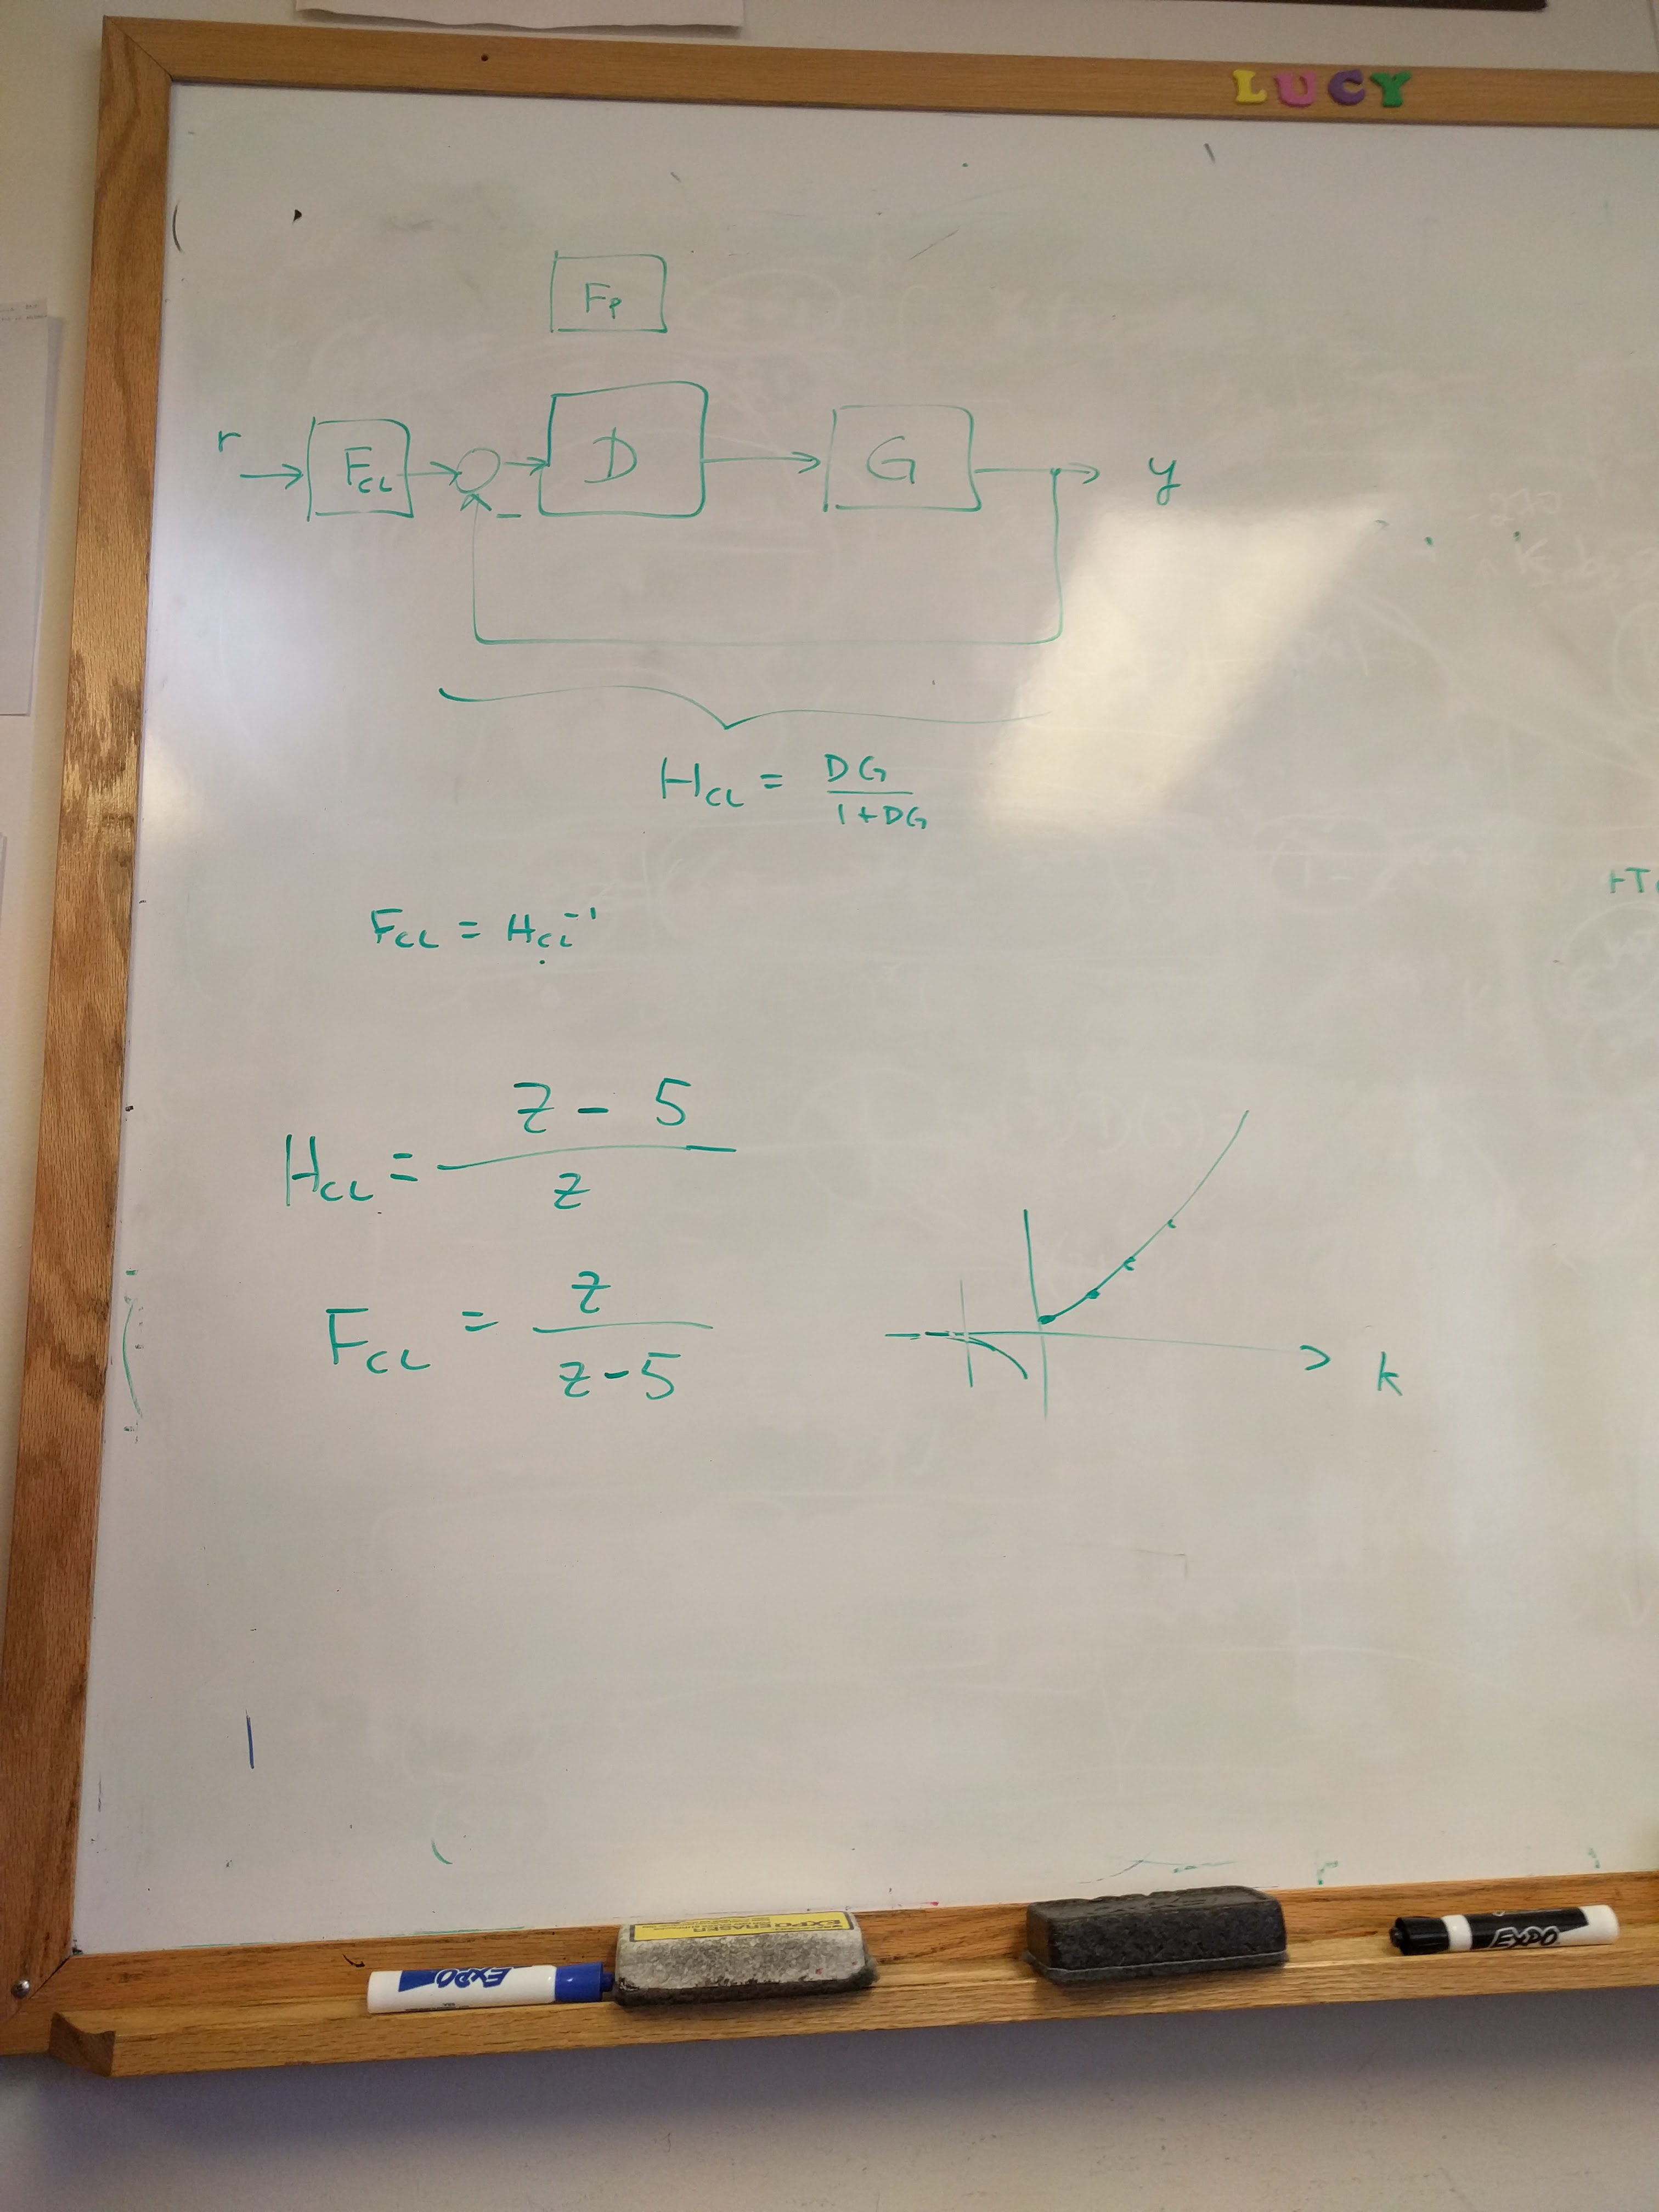 LUCY
F_P
r F_CL D G y
-
H_CL = DG / 1+DG
F_CL = H_CL^-1
H_CL = z - 5 / z
F_CL = z / z-5
k
EXPO
EXPO ERASER
EXPO